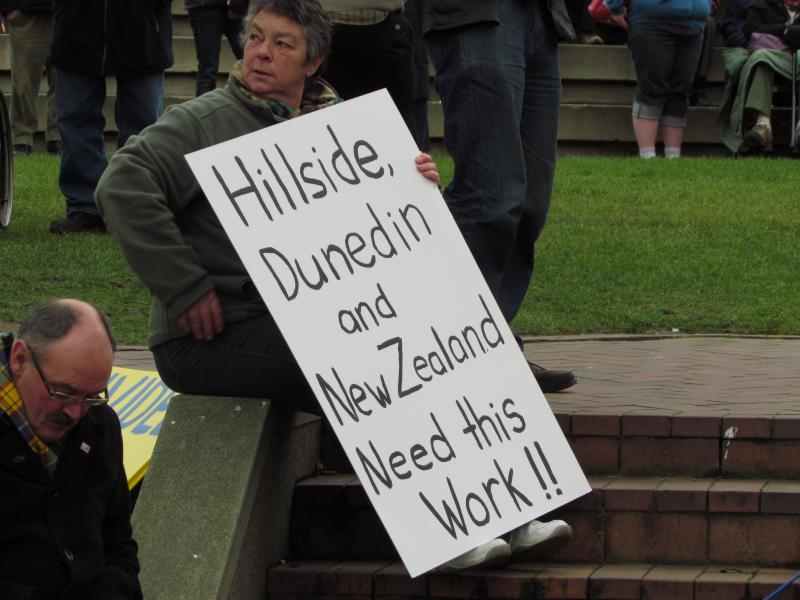 Hillside,
Dunedin
and
New Zealand
Need this
Work!!